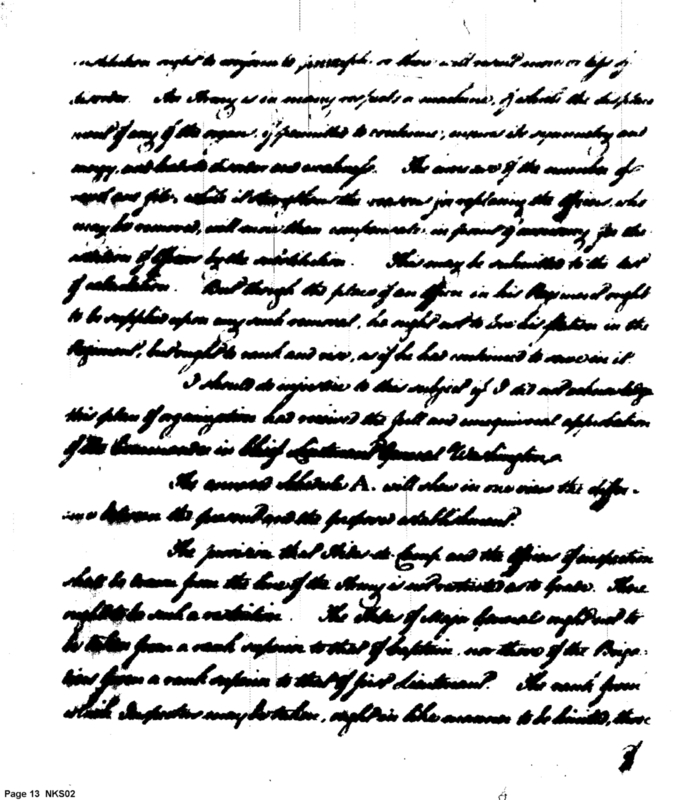 institution ought to conform to principle, or there will result more or less of
disorder. An Army is in many respects a machine, of which the displace
ment of any of the organs, if permitted to continue, injures its symmetry and
energy, and leads to disorder and weakness. The increase of the number of
rank and file, while it strengthens the reasons for replacing the Officers who
may be removed, will more than compensate in point of economy for the
addition of Officers by the substitution. This may be submitted to the test
of calculation. But though the place of an Officer in his Regiment ought
to be supplied upon any such removal, he ought not to lose his station in the
Regiment, but ought to rank and rise, as if he had continued to serve in it.
I should do injustice to this subject if I did not acknowledge
this plan of organization had received the full and unequivocal approbation
of the Commander in Chief Lieutenant General Washington.
The annexed Schedule A. will shew in one view the differ-
ence between the present and the proposed establishment.
The provision that Aides-de-Camp and the Officers of inspection
shall be drawn from the line of the Army is not restricted as to Grade. There
ought to be such a restriction. The Aides of Major Generals ought not to
be taken from a rank superior to that of Captain, nor those of the Briga-
diers from a rank superior to that of first Lieutenant. The rank from
which Inspectors may be taken, ought in like manner to be limited, those
Page 13 NKS02